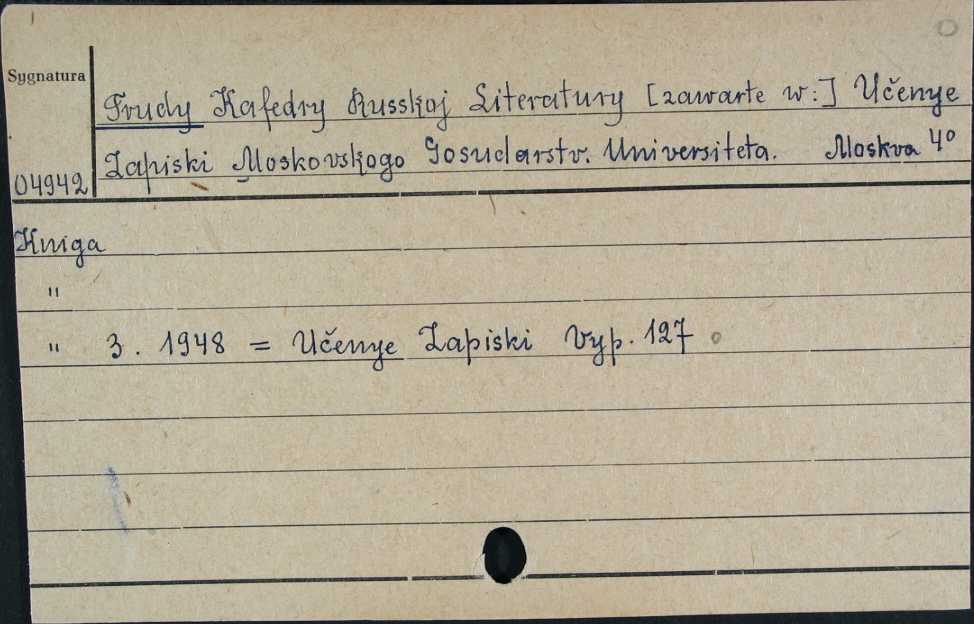 Sygnatura
Trudy Kafedry Russkoj Literatury [zawarte w:] Učenye
Zapiski Moskovskogo Gosudarstv. Universiteta. Moskva 4°
04942
Kniga
"
" 3. 1948 = Učenye Zapiski Vyp. 127